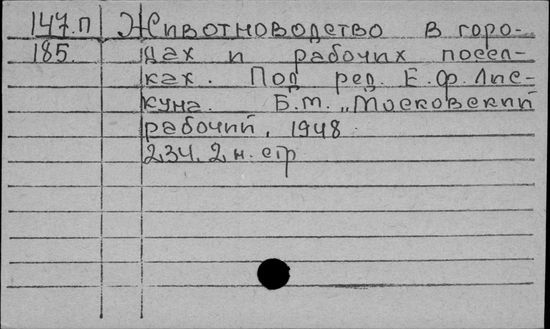 147.П Животноводство в горо-
185. дах и рабочих посел-
ках. Под ред. Е.Ф. Лис-
куна. Б.м. „Московский
рабочий, 1948.
234, 2 н. стр